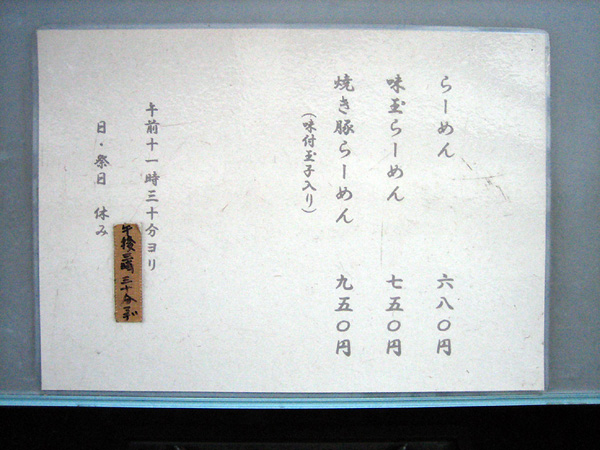 らーめん 六八〇円
味玉らーめん 七五〇円
焼き豚らーめん 九五〇円
(味付玉子入り)
午前十一時三十分ヨリ
午後三時三十分まで
日・祭日 休み